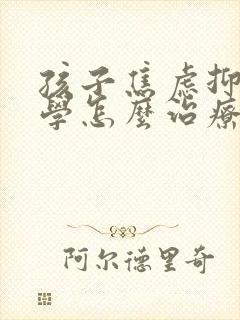 孩子焦虑抑
學怎麼治療
阿尔德里奇